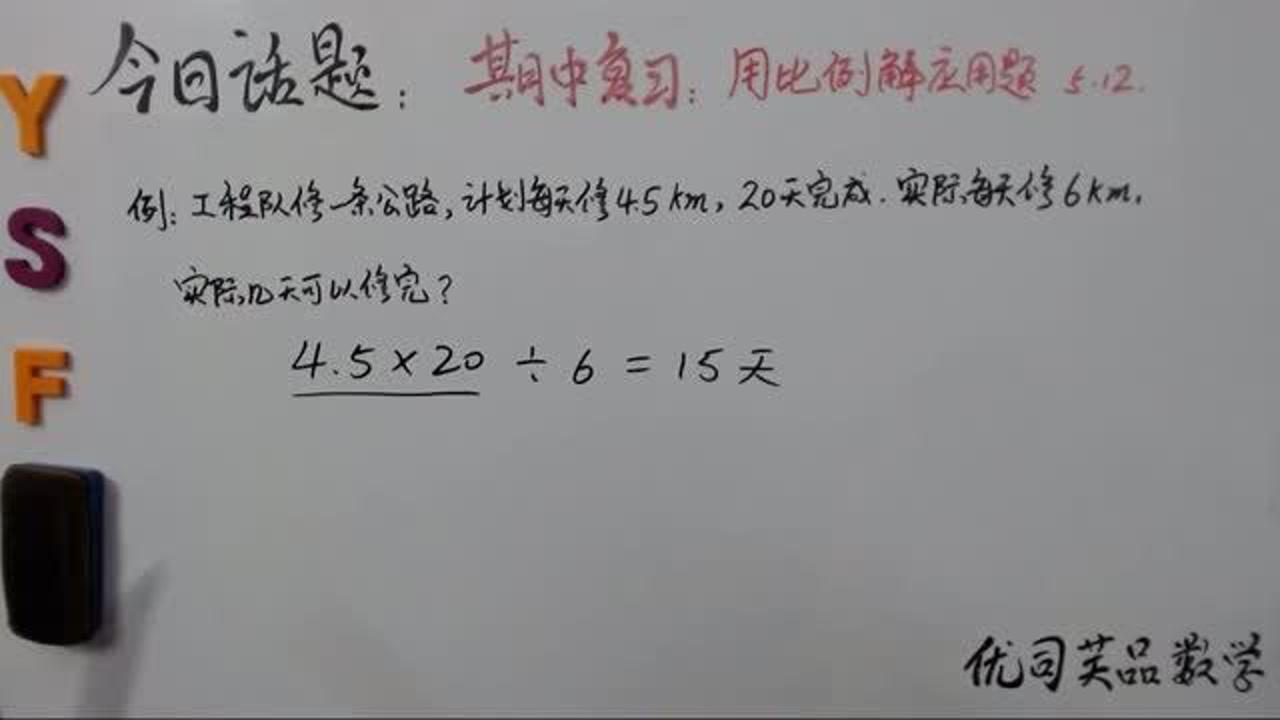 今日话题： 期中复习：用比例解应用题 5.12.
例：工程队修一条公路，计划每天修4.5km，20天完成．实际每天修6km，
实际几天可以修完？
4.5×20÷6=15天
Y
S
F
优司芙品数学